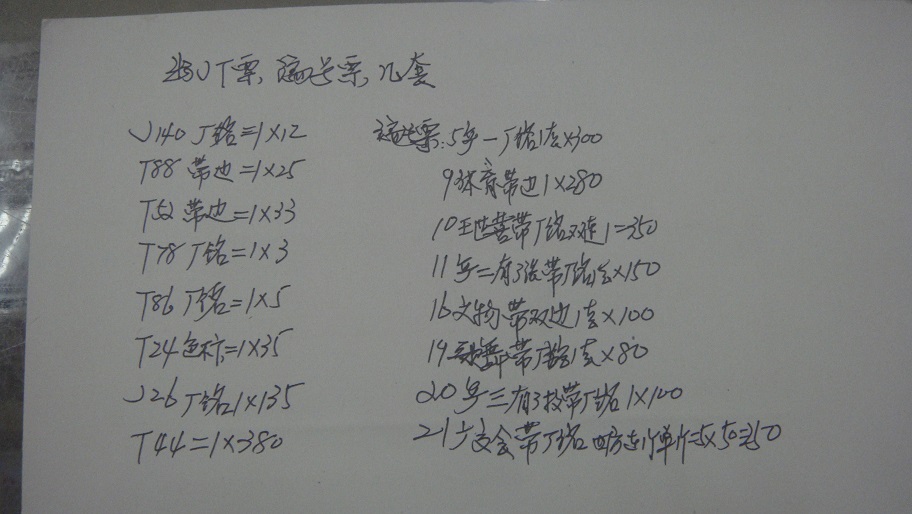 JT票,编号票,几套
J140厂铭=1×12
T88带边=1×25
T52带边=1×33
T78厂铭=1×3
T86厂铭=1×5
T24色标=1×35
J26厂铭1×135
T44=1×380
编号票:5号一厂铭1套×300
9体育带边1×280
10王世 带厂铭双连1=350
11号二有3张带厂铭 ×150
16文物带双边1套×100
19 舞带厂铭1套×80
20号三有3枚带厂铭1×100
21 交会带厂铭四方连 单 5×50=250